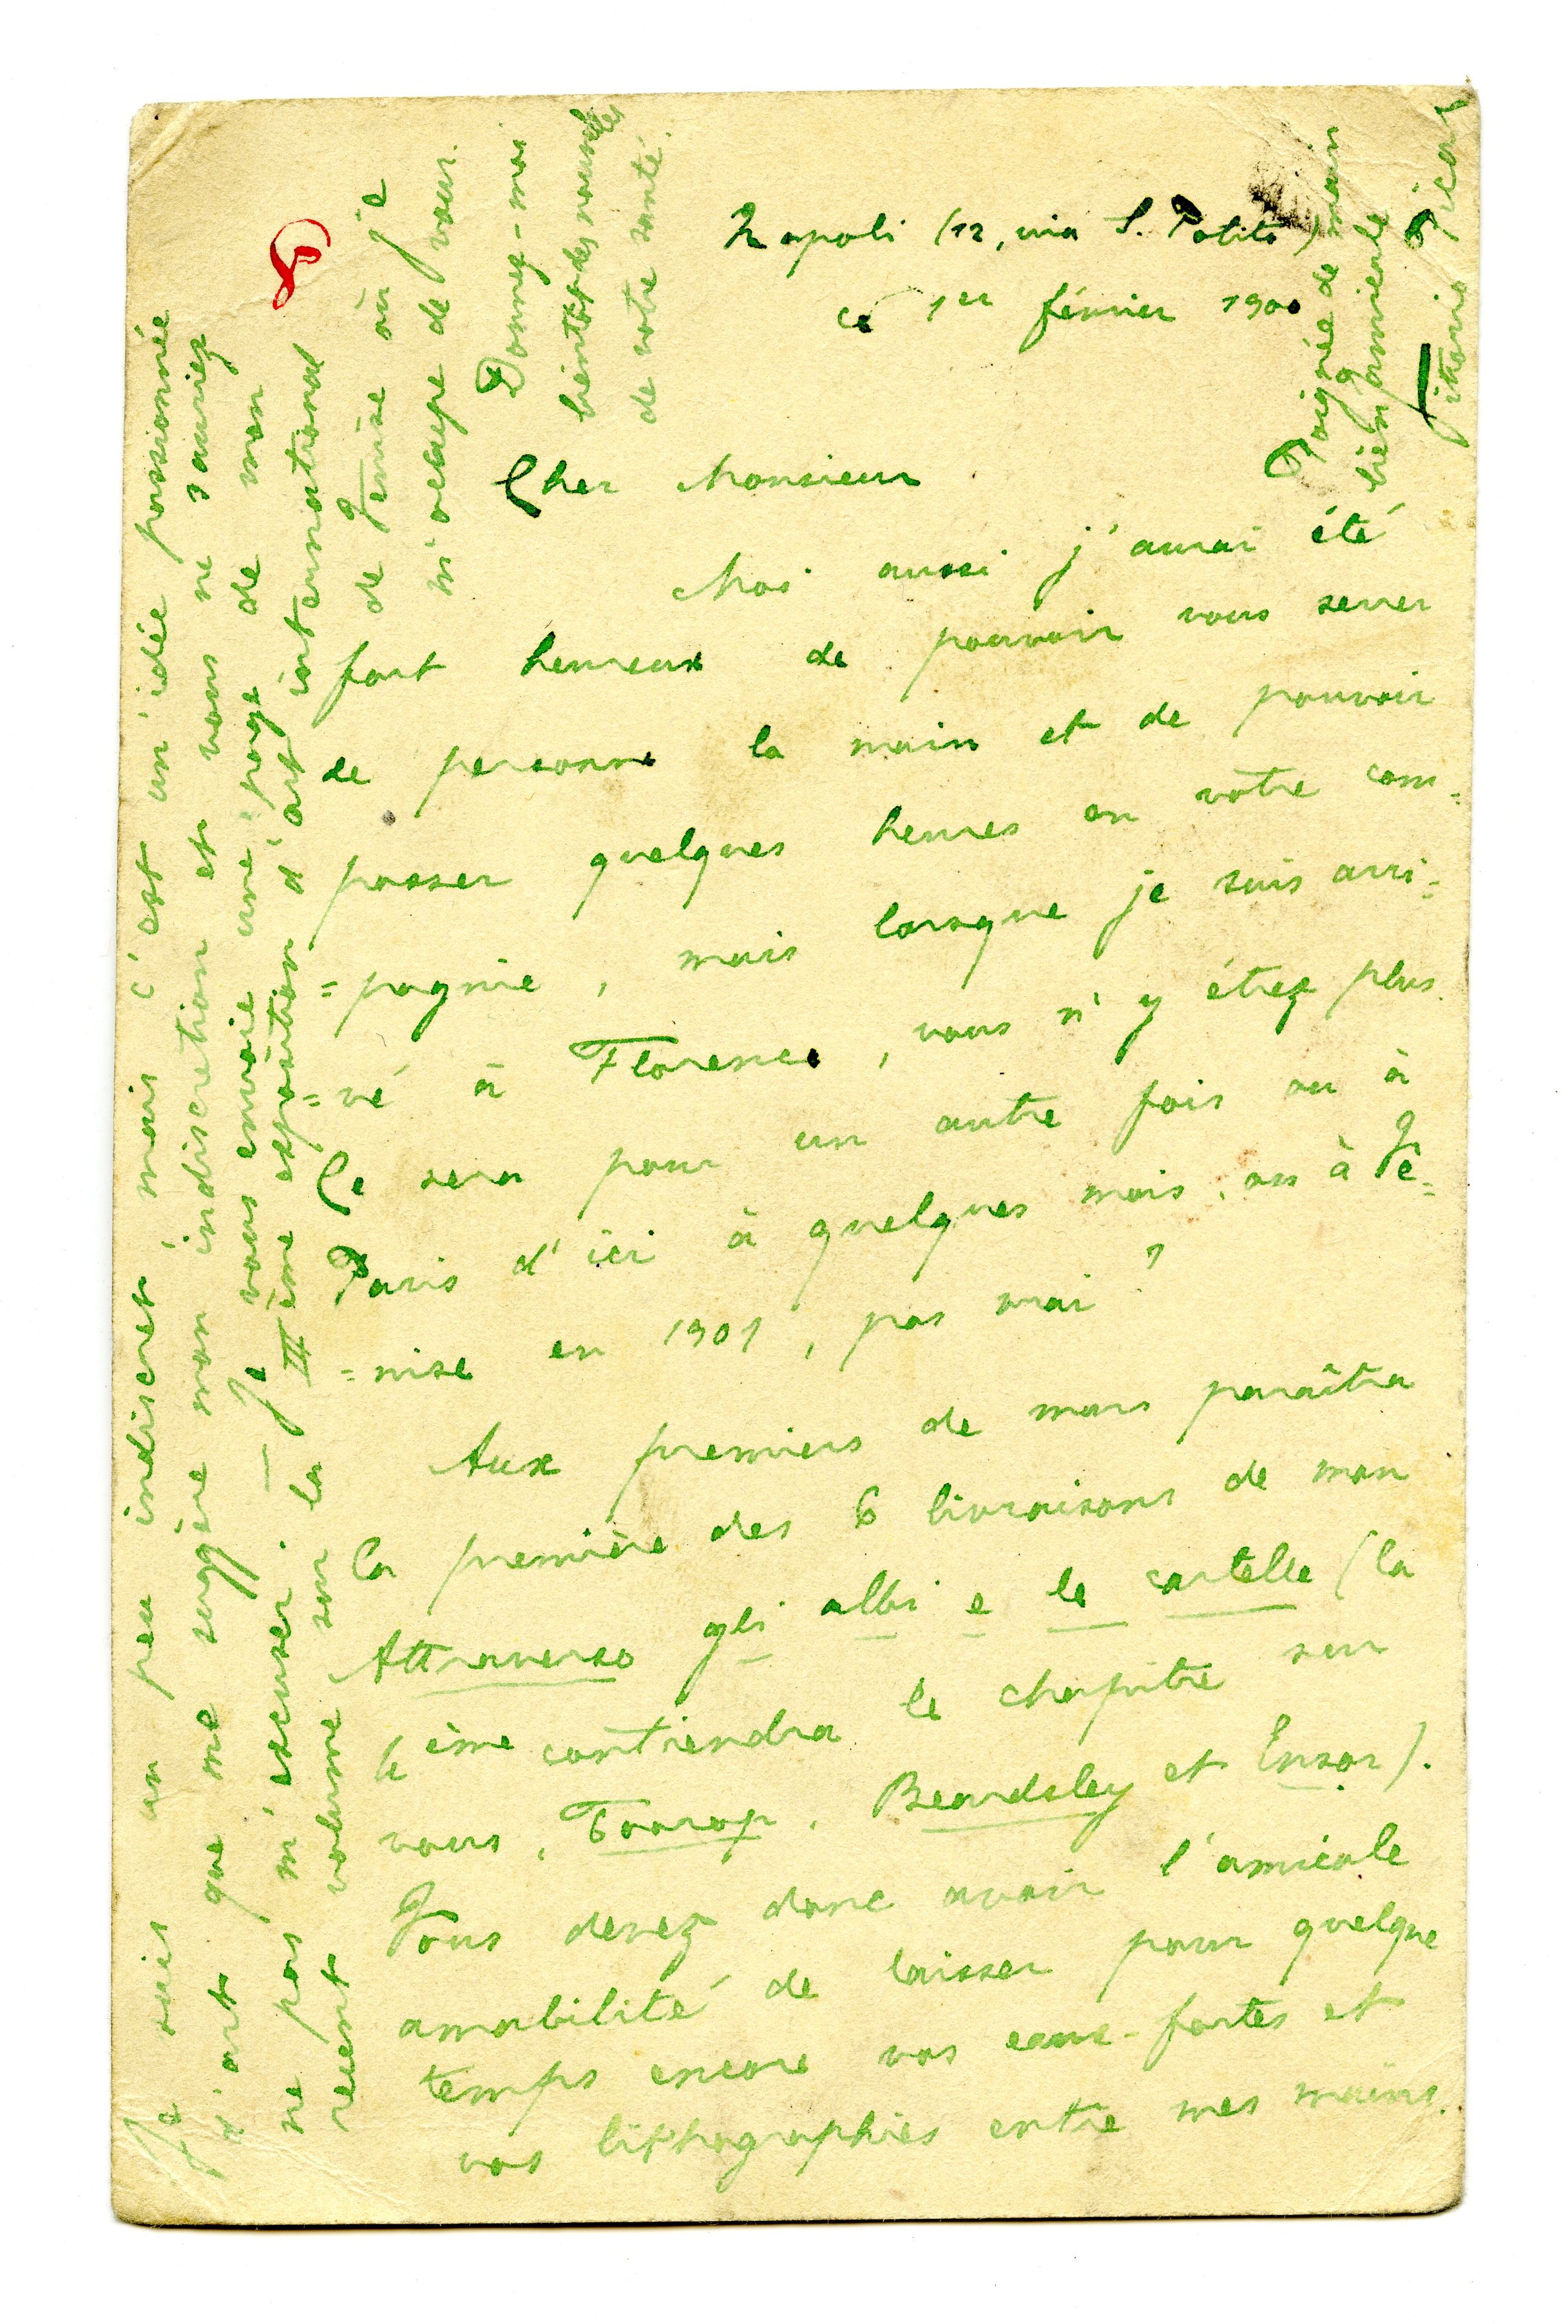 Napoli (12, via S. Potito)
ce 1er février 1900
Cher Monsieur
Moi aussi j'aurai été
fort heureux de pouvoir vous serrer
de personne la main et de pouvoir
passer quelques heures en votre com=
=pagnie, mais lorsque je suis arri=
=vé à Florence, vous n'y étiez plus.
Ce sera pour un autre fois ou à
Paris d'ici à quelques mois, ou à Ve=
=nise en 1901, pas vrai?
Aux premiers de mars paraîtra
la première des 6 livraisons de mon
Attraverso gli albi e le cartelle (la
6ème contiendra le chapitre sur
vous, Toorop, Beardsley et Ensor).
Vous devez donc avoir l'amicale
amabilité de laisser pour quelque
temps encore vos eaux-fortes et
vos lipthographies entre mes mains.
Je suis un peu indiscret, mais c'est un'idée passionnée
d'art que me suggère mon indiscretion et vous ne sauriez
ne pas m'excuser. — Je vous envoie une page de mon
recent volume sur la IIIème expoìtion d'art international
de Venise où je
m'occupe de vous.
Donnez-moi
bientôt des nouvelles
de votre santé.
Poignée de main
bien amicale
Vittorio Pica
8